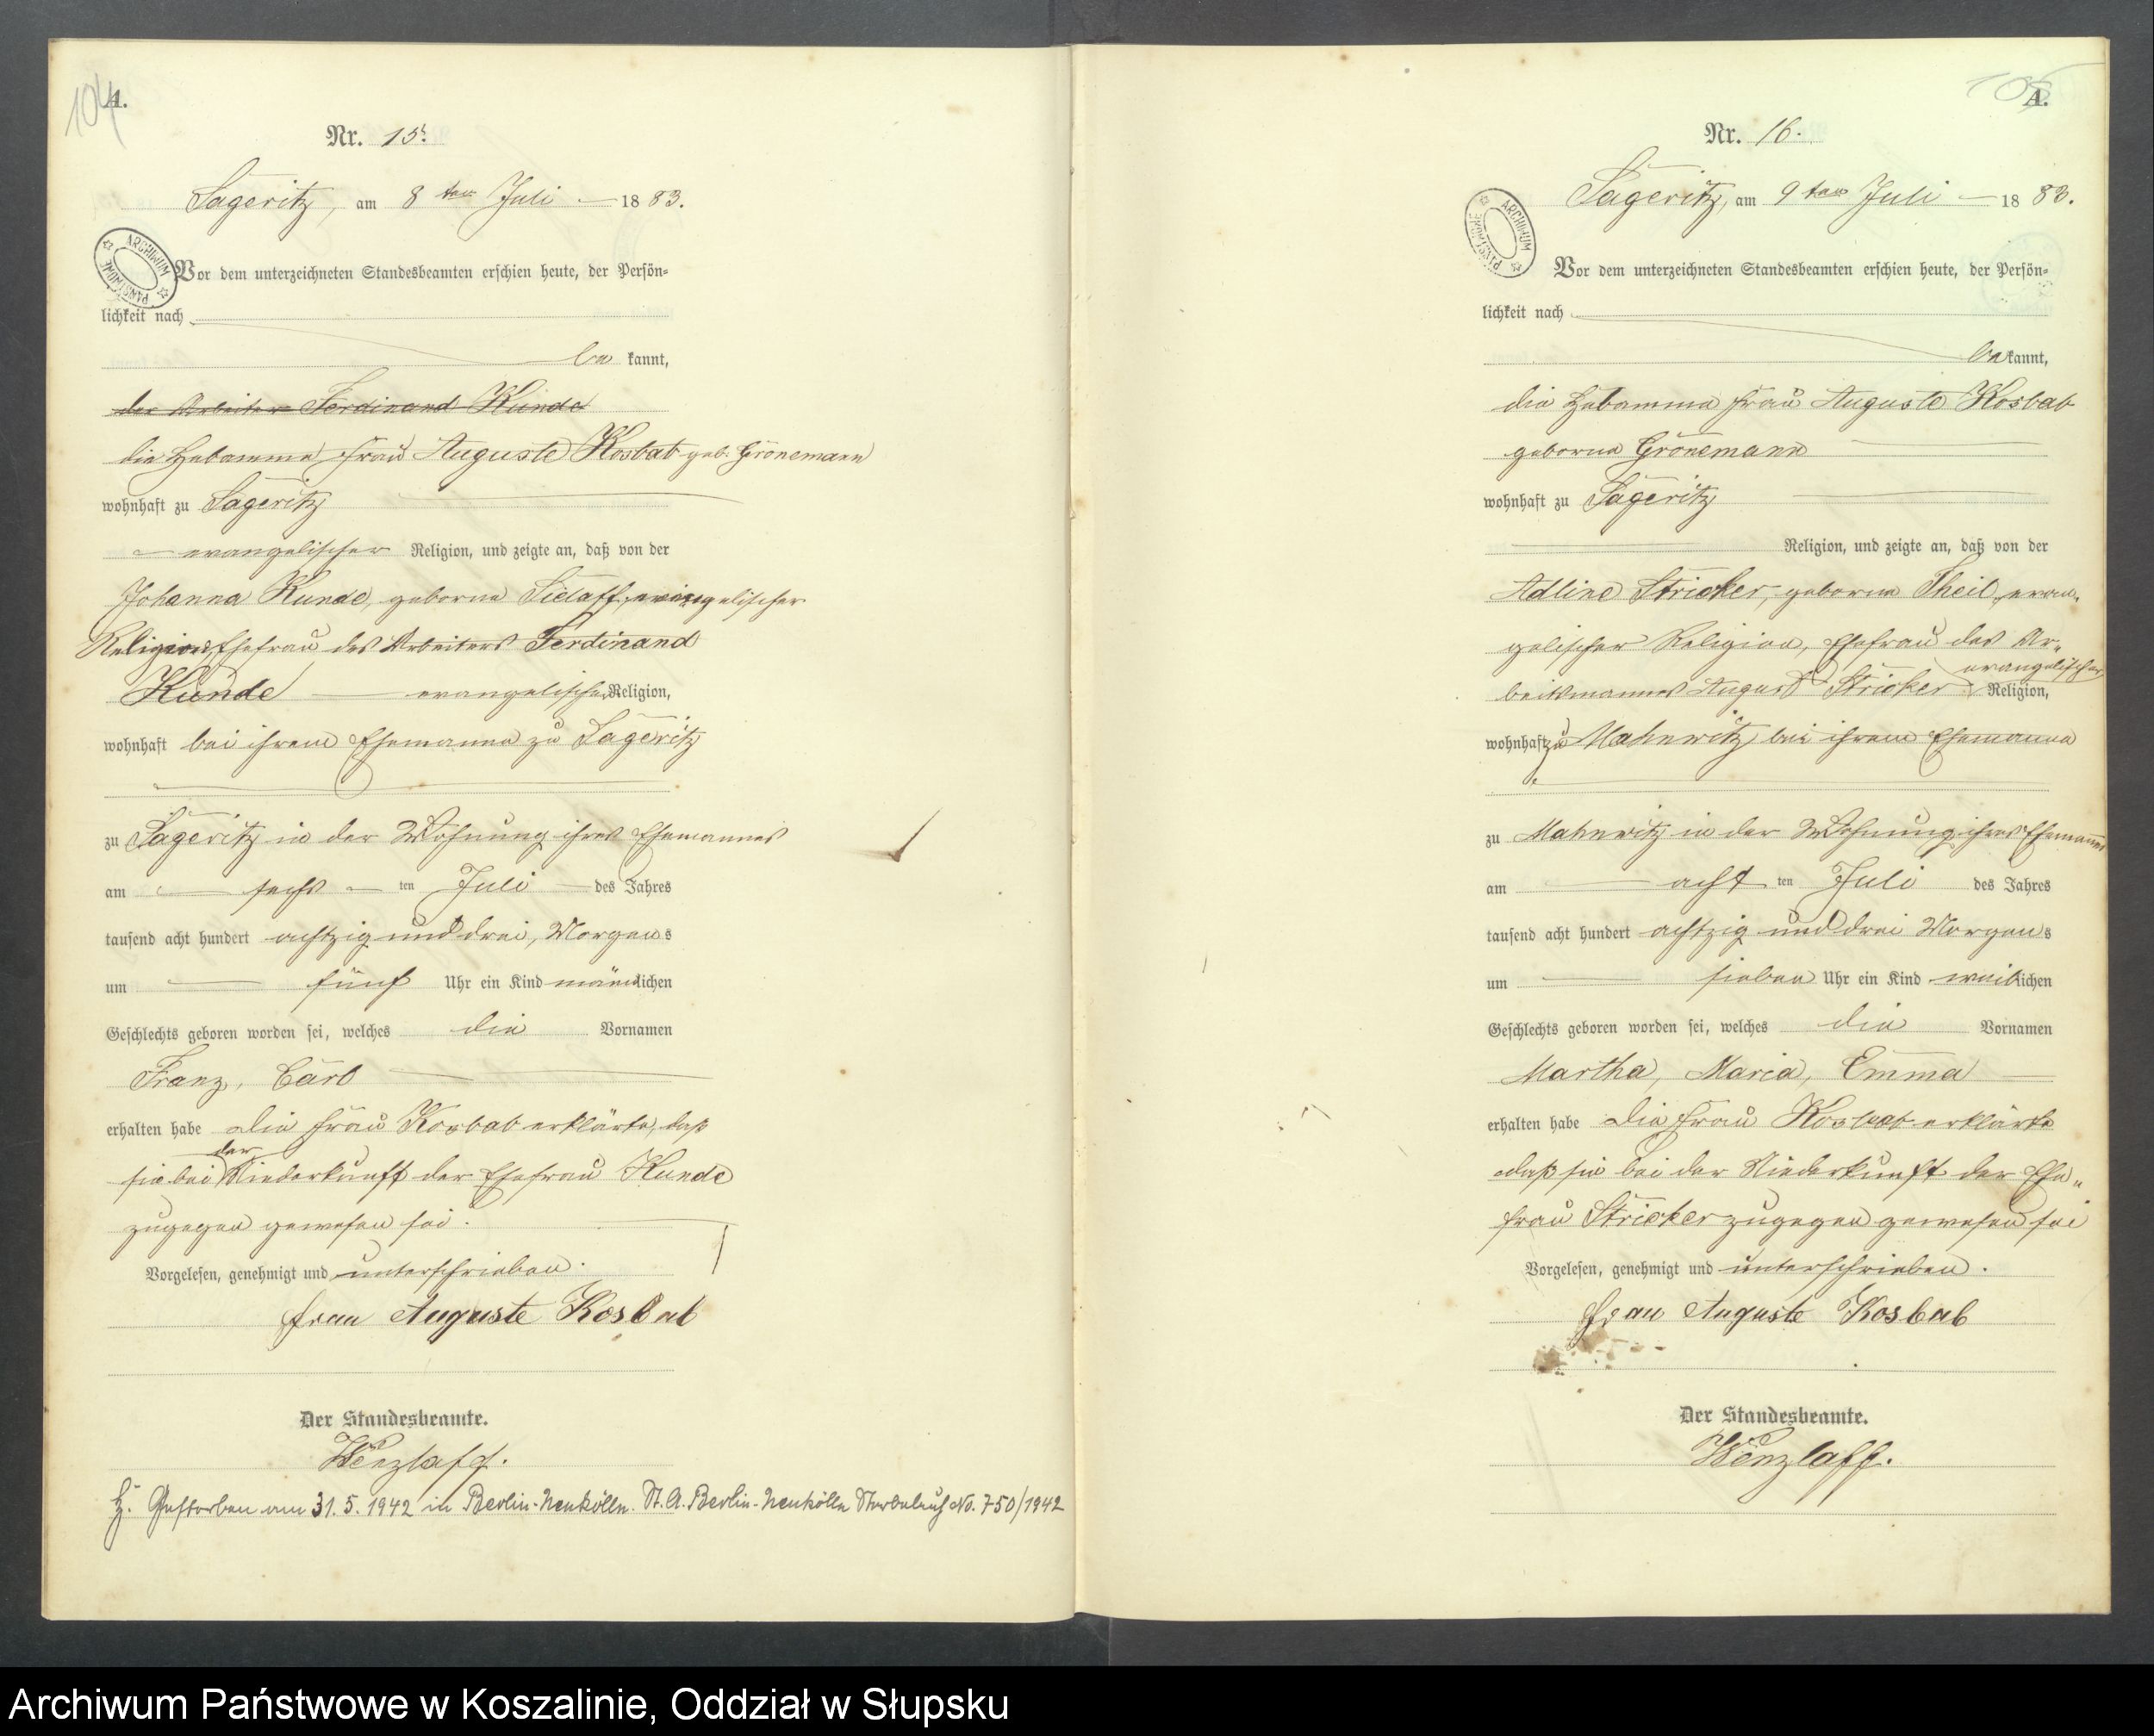 104
A.
Nr. 15.
Sageritz, am 8 ten Juli 1883.
ARCHIWUM PAŃSTWOWE
Vor dem unterzeichneten Standesbeamten erschien heute, der Persön-
lichkeit nach
be kannt,
der Arbeiter Ferdinand Kunde
die Hebamme Frau Auguste Kosbab geb. Grönemann
wohnhaft zu Sageritz
evangelischer Religion, und zeigte an, daß von der
Johanna Kunde, geborne Sielaff, evangelischer
Religion, Ehefrau des Arbeiters Ferdinand
Kunde evangelischer Religion,
wohnhaft bei ihrem Ehemanne zu Sageritz
zu Sageritz in der Wohnung ihres Ehemannes
am sechs ten Juli des Jahres
tausend acht hundert achtzig und drei, Morgens
um fünf Uhr ein Kind männlichen
Geschlechts geboren worden sei, welches die Vornamen
Franz, Carl
erhalten habe Die Frau Kosbab erklärte, daß
sie bei der Niederkunft der Ehefrau Kunde
zugegen gewesen sei.
Vorgelesen, genehmigt und unterschrieben.
Frau Auguste Kosbab
Der Standesbeamte.
Wenzlaff.
Gestorben am 31.5.1942 in Berlin-Neukölln. St.A. Berlin-Neukölln Sterbebuch No. 750/1942
105
A.
Nr. 16.
Sageritz, am 9 ten Juli 1883.
ARCHIWUM PAŃSTWOWE
Vor dem unterzeichneten Standesbeamten erschien heute, der Persön-
lichkeit nach
bekannt,
die Hebamme Frau Auguste Kosbab
geborne Grönemann
wohnhaft zu Sageritz
Religion, und zeigte an, daß von der
Adline Stricker, geborne Theil, evan-
gelischer Religion, Ehefrau des Ar-
beitsmannes August Stricker evangelischer Religion,
wohnhaft zu Mahnwitz bei ihrem Ehemanne
zu Mahnwitz in der Wohnung ihres Ehemannes
am acht ten Juli des Jahres
tausend acht hundert achtzig und drei Morgens
um sieben Uhr ein Kind weiblichen
Geschlechts geboren worden sei, welches die Vornamen
Martha, Maria, Emma
erhalten habe Die Frau Kosbab erklärte
daß sie bei der Niederkunft der Ehe-
frau Stricker zugegen gewesen sei
Vorgelesen, genehmigt und unterschrieben.
Frau Auguste Kosbab
Der Standesbeamte.
Wenzlaff.
Archiwum Państwowe w Koszalinie, Oddział w Słupsku